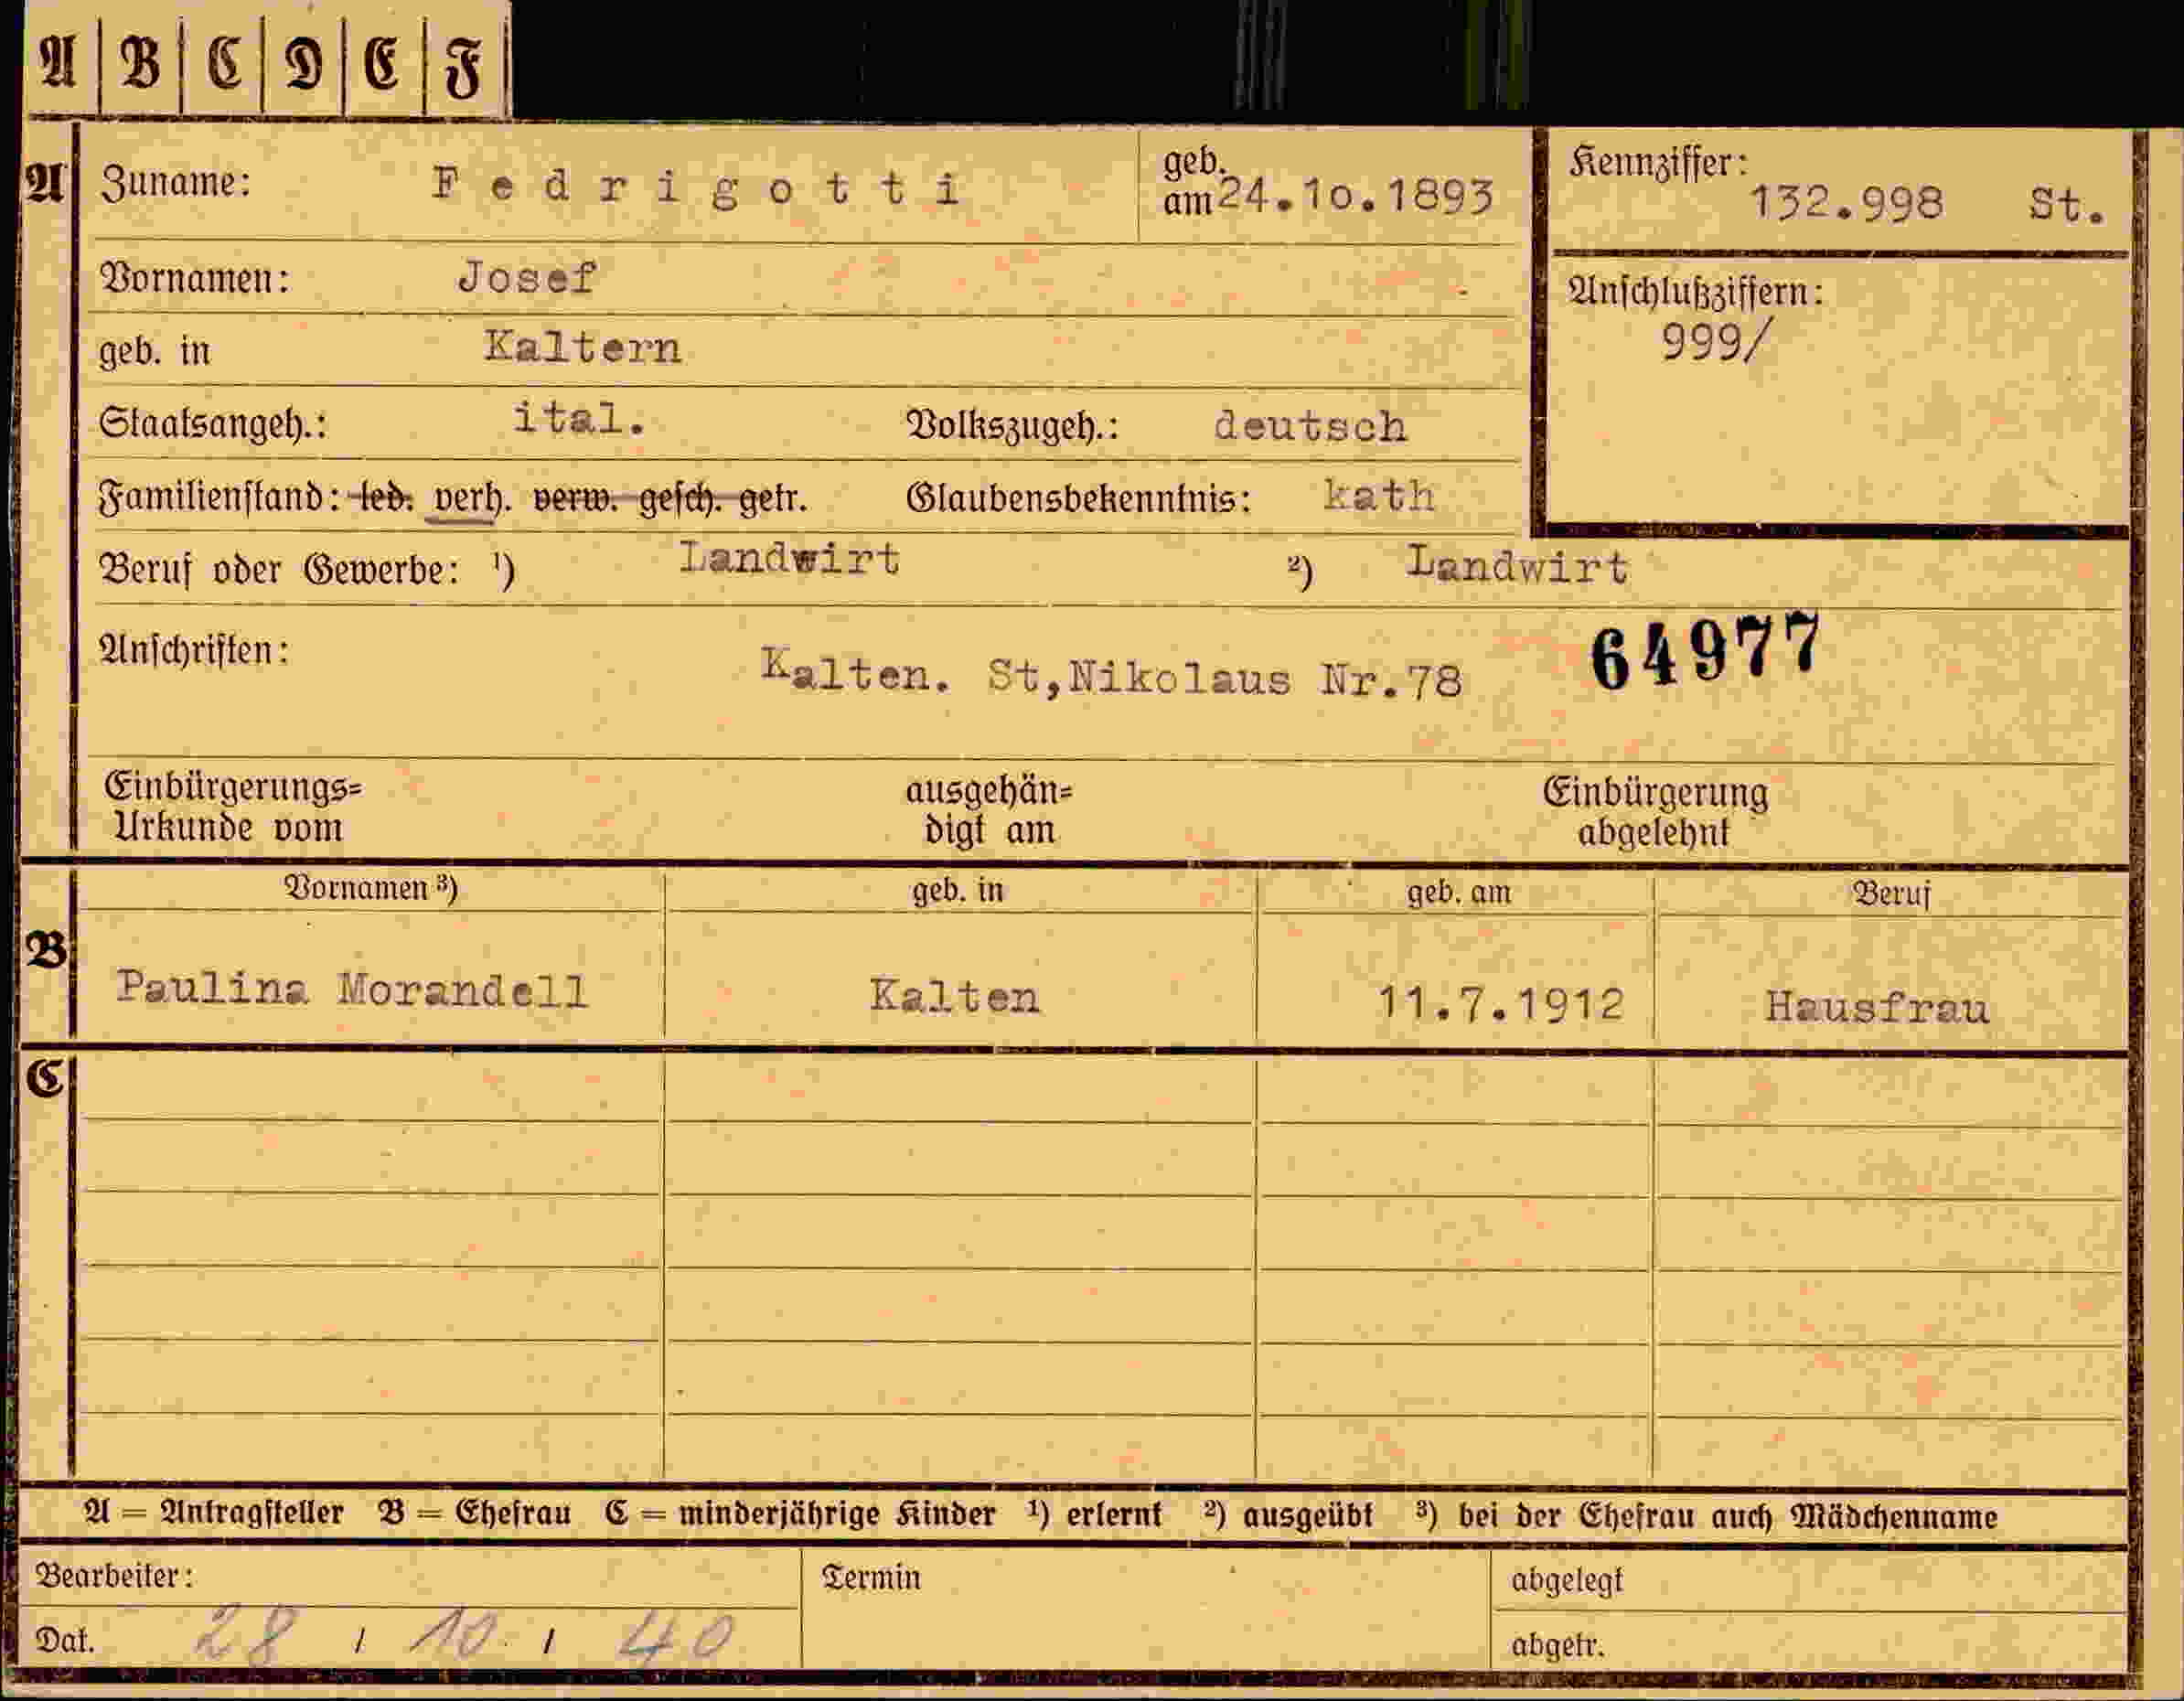 A B C D E F
A Zuname: Fedrigotti geb. am 24.10.1893 Kennziffer: 132.998 St.
Vornamen: Josef Anschlußziffern: 999/
geb. in Kaltern
Staatsangeh.: ital. Volkszugeh.: deutsch
Familienstand: led. verh. verw. gesch. getr. Glaubensbekenntnis: kath
Beruf oder Gewerbe: ¹) Landwirt ²) Landwirt
Anschriften: Kalten. St,Nikolaus Nr.78 64977
Einbürgerungs= ausgehän= Einbürgerung
Urkunde vom digt am abgelehnt
Vornamen ³) geb. in geb. am Beruf
B Paulina Morandell Kalten 11.7.1912 Hausfrau
C
A = Antragsteller B = Ehefrau C = minderjährige Kinder ¹) erlernt ²) ausgeübt ³) bei der Ehefrau auch Mädchenname
Bearbeiter: Termin abgelegt
Dat. 28 / 10 / 40 abgetr.